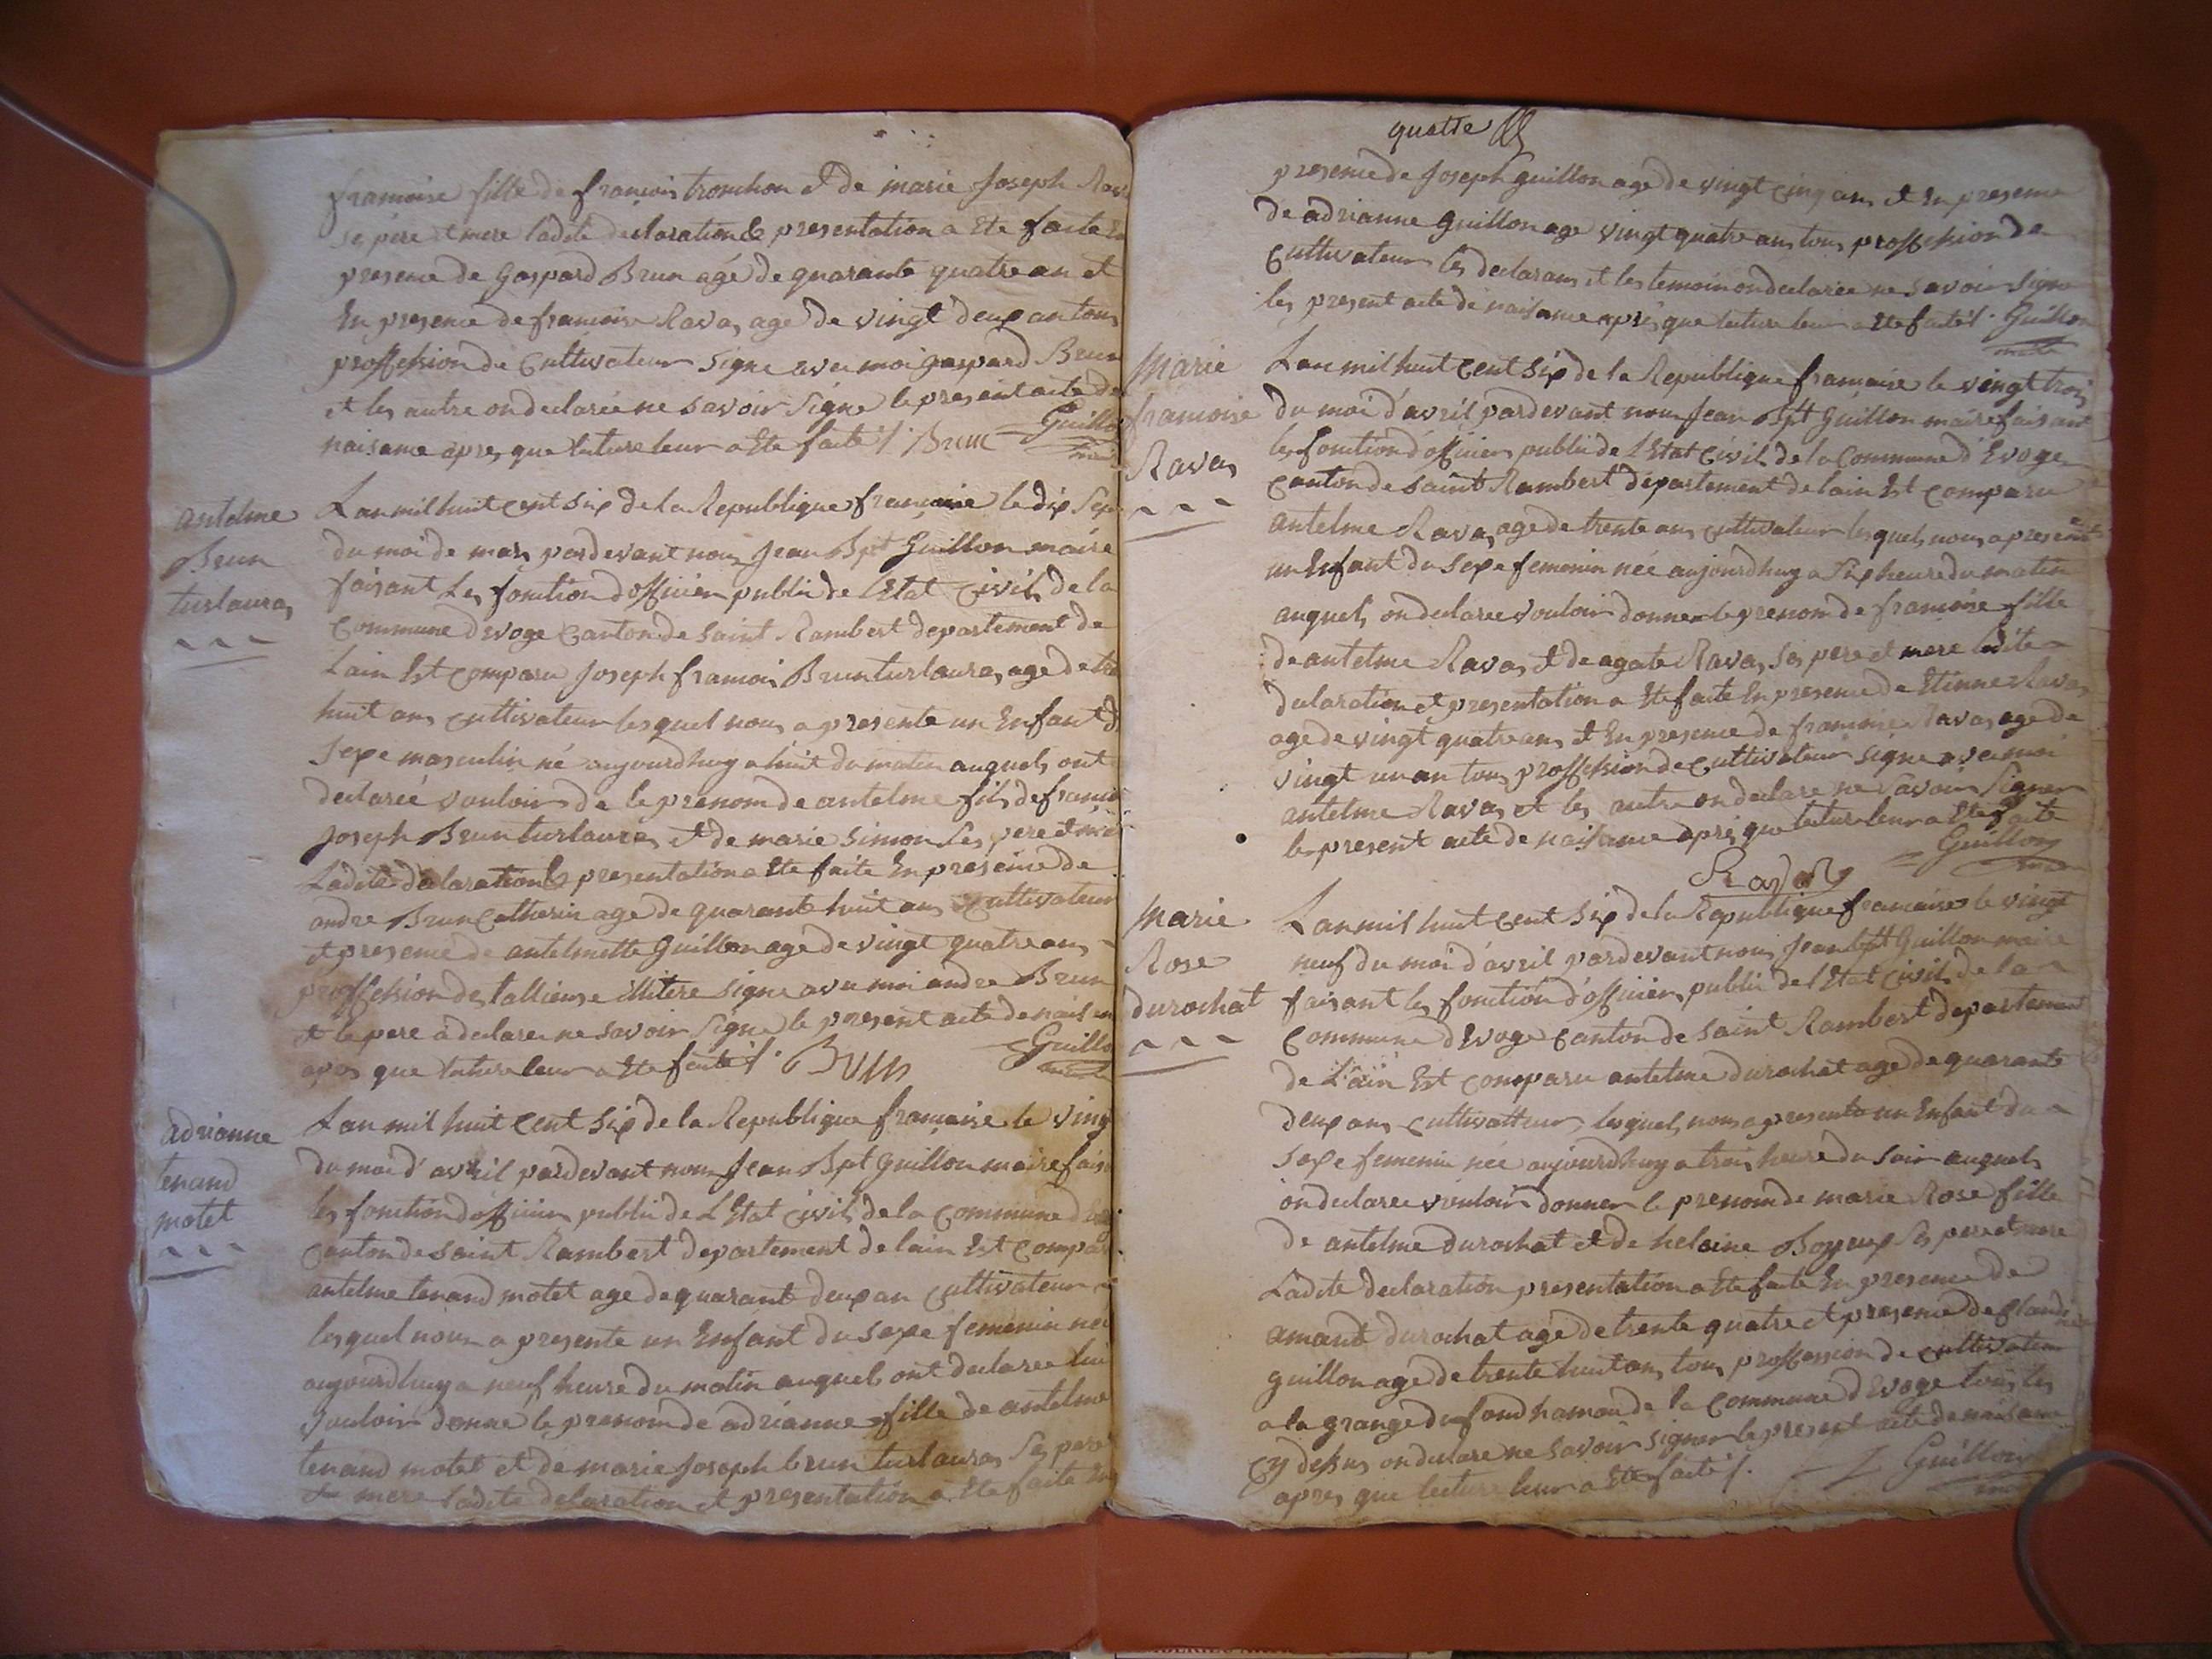 francoise fille de francois tronchon et de marie Joseph Rav
se pere et mere ladite declaration & presentation a Ete faite En
presence de Gaspard Brun agé de quarante quatre an et
En presence de francoise Ravas age de vingt deux an tous
proffession de Cultivateur signe avec moi gaspard Brun
et les autre on declarée ne savoir signe le present acte de
naisance apres que lecture leur a Ete faite /. Brun Guillo
antelme
Brun
turlauras
Lan mil huit cent six de la Republique francaise le dix Sep
du moi de mars pardevant nous Jean Bpt Guillon maire
faisant Les fonction d'officier public de l'Etat Civil de la
Commune d'Evoge Canton de saint Rambert departement de
Lain Est comparu Joseph francois Brun turlauras age de tre
huit ans cultivateur lesquel nous a presente un Enfant d
Sexe masculin né aujourdhuy a huit du matin auquels ont
declarée vouloir de le prenom de antelme fils de francoi
Joseph Brun turlauras et de marie simon Ses pere et mer
Ladite declaration & presentation a Ete faite En presence de
andre Brun Catherin age de quarante huit ans cultivateur
et presence de antelmette Guillon age de vingt quatre ans
proffession de tallieuse illitere signe avec moi andre Brun
et le pere a declaree ne savoir signe le present acte de naisan
apres que lecture leur a Ete faite /. Brun Guillo
adrianne
tenand
motet
Lan mil huit Cent six de la Republique francaise le ving
du moi d'avril pardevant nous Jean Bpt Guillon maire fais
les fonction d'officier public de L'Etat Civil de la Commune d'Evo
Canton de saint Rambert departement de lain Est Compar
antelme tenand motet age de quarante deux an cultivateur
lesquel nous a presente un Enfant du sexe femenin née
aujourdhuy a neuf heure du matin auquels ont declaree lui
vouloir donne le prenom de adrianne fille de antelme
tenand motet et de marie Joseph brun turlauras Ses pere
et mere ladite delaration et presentation a Ete faite En
quatre
presence de Joseph guillon age de vingt Cinq ans et En presence
de adrianne guillon age vingt quatre ans tous proffession de
Cultivateur les declarans et les temoin on declaree ne savoir signe
les present acte de naisance apres que lecture leur a Ete faite /. Guillon
Marie
francoise
Ravas
Lan mil huit Cent Six de la Republique francaise le vingt trois
du moi d'avril pardevant nous Jean Bptt Guillon maire faisant
les fonction d'officier public de l'Etat Civil de la Commune d'Evoge
Canton de saint Rambert departement de lain Est Comparu
antelme Ravas age de trente ans cultivateur lesquels nous a presente
un Enfant du Sexe femenin née aujourdhuy a Six heure du matin
auquels on declaree vouloir donner le prenom de francoise fille
de antelme Ravas et de agate Ravas Ses pere et mere ladite
declaration et presentation a Ete faite En presence de Etienne Ravas
age de vingt quatre ans et En presence de francoise Ravas age de
vingt un an tous proffession de Cultivateur signe avec moi
antelme Ravas et les autre on declare ne savoir signer
le present acte de naisance apres que lecture leur a Ete faite
Guillon
Marie
Rose
durochat
Lan mil huit Cent Six de la Republique francaise le vingt
neuf du moi d'avril pardevant nous Jean bptt Guillon maire
faisant les fonction d'officier public de l'Etat Civil de la
Commune d'Evoge Canton de saint Rambert departement
de L'ain Est comparu antelme durochat age de quarante
deux ans cultivatteur lesquels nous a presente un Enfant du
sexe femenin née aujourdhuy a trois heure du soir auquels
on declaree vouloir donner le prenom de marie Rose fille
de antelme durochat et de helaine Boyeux Ses pere et mere
Ladite declaration presentation a Ete faite En presence de
amand durochat age de trente quatre et presence de
guillon age de trente huit ans tous proffession de cultivateur
a la grange du fond hamau de la Commune d'Evoge tous les
Cy dessus on declare ne savoir signer le present acte de naisance
apres que lecture leur a Ete faite /. Guillon